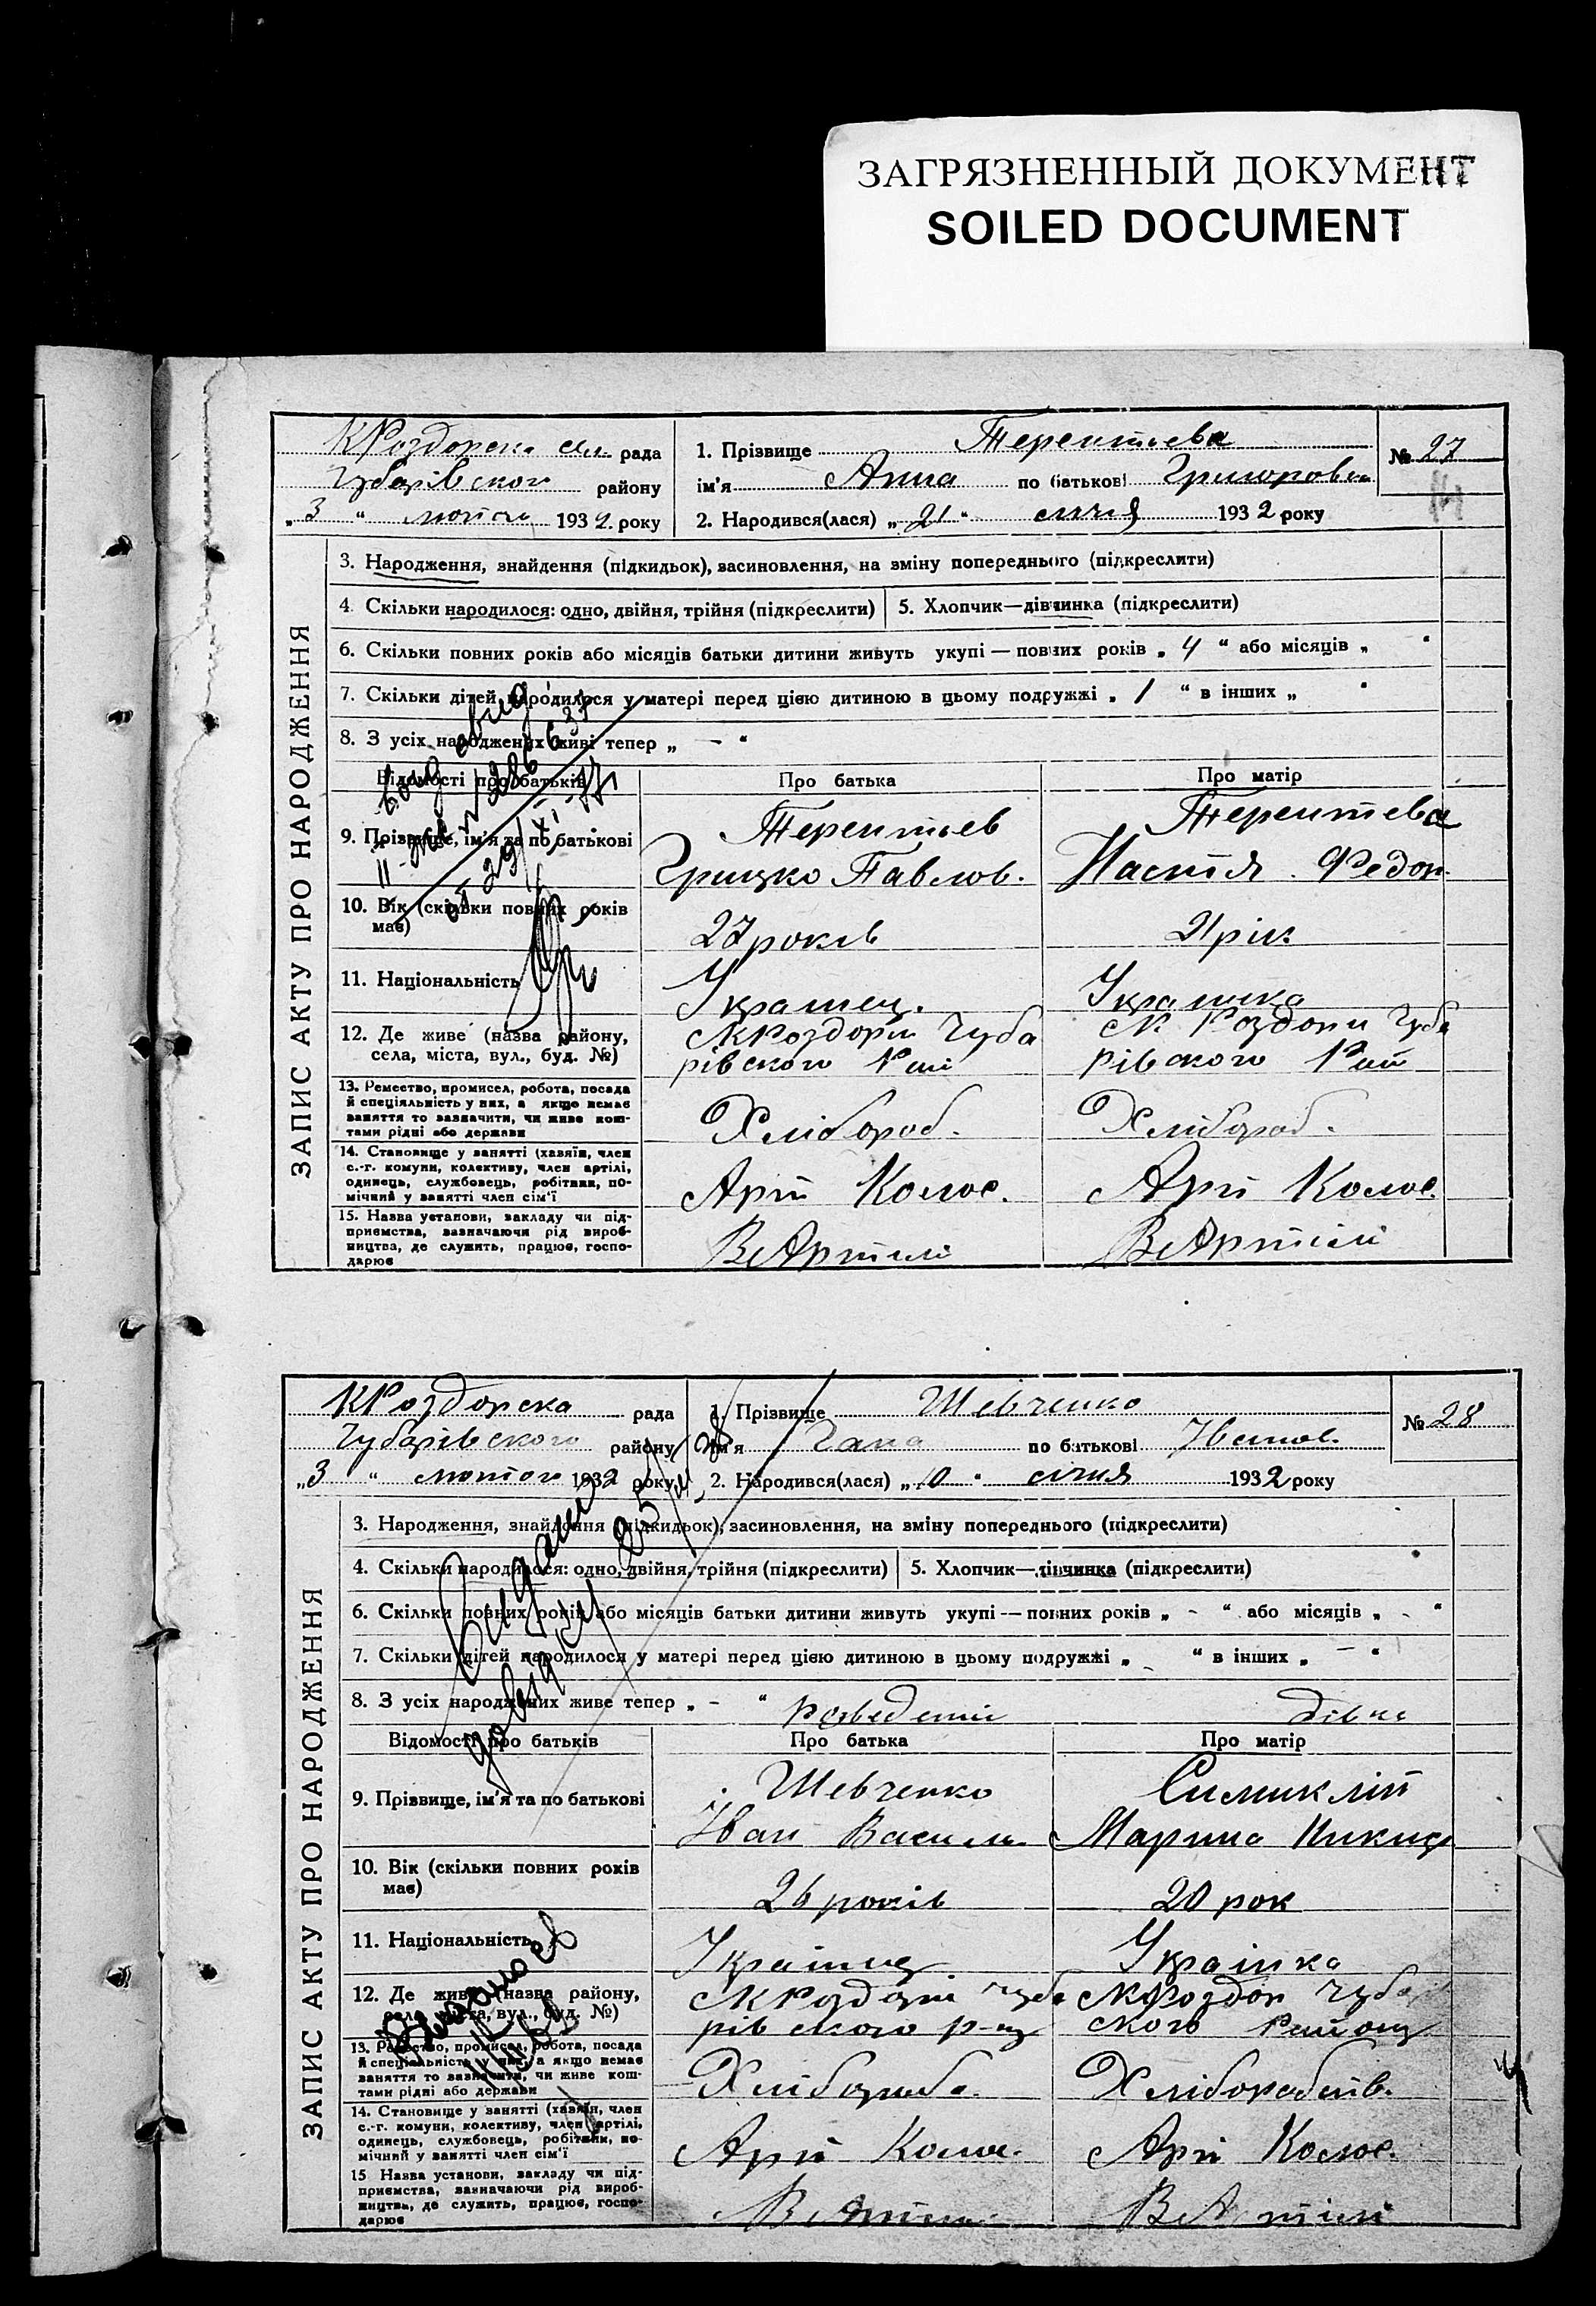 ЗАГРЯЗНЕННЫЙ ДОКУМЕНТ
SOILED DOCUMENT
ЗАПИС АКТУ ПРО НАРОДЖЕННЯ
КРоздорська рада
Чубарівського району
„3“ лютого 1932 року
1. Прізвище Терентьева
ім'я Анна по батькові Григоровна
2. Народився(лася) „21“ січня 1932 року
№ 27
14
3. Народження, знайдення (підкидьок), засиновлення, на зміну попереднього (підкреслити)
4. Скільки народилося: одно, двійня, трійня (підкреслити) 5. Хлопчик—дівчинка (підкреслити)
6. Скільки повних років або місяців батьки дитини живуть укупі — повних років „4“ або місяців „ “
7. Скільки дітей народилося у матері перед цією дитиною в цьому подружжі „1“ в інших „ “
8. З усіх народжених живі тепер „ — “
Відомості про батьків Про батька Про матір
9. Прізвище, ім'я та по батькові
Терентьев
Грицко Павлов.
Терентева
Настя Федор.
10. Вік (скільки повних років
має)
27 років 21 рік
11. Національність Украінец. Украинка
12. Де живе (назва району,
села, міста, вул., буд. №)
КРоздори Чуба
рівского Рай
К Роздори Чуба
рівского Рай
13. Ремество, промисел, робота, посада
й спеціяльність у них, а якщо немає
заняття то зазначити, чи живе кош-
тами рідні або держави
Хлібороб. Хлібороб.
14. Становище у занятті (хазяїн, член
с.-г. комуни, колективу, член артілі,
одинець, службовець, робітник, по-
мічний у занятті член сім'ї
Арті Колос. Арті Колос.
15. Назва установи, закладу чи під-
приємства, зазначаючи рід вироб-
ництва, де служить, працює, госпо-
дарює
В Артилі В Артілі
ЗАПИС АКТУ ПРО НАРОДЖЕННЯ
КРоздорска рада
Чубарівского району
„3“ лютого 1932 року
1. Прізвище Шевченко
ім'я Гана по батькові Іванов.
2. Народився(лася) „10“ січня 1932 року
№ 28
3. Народження, знайдення (підкидьок), засиновлення, на зміну попереднього (підкреслити)
4. Скільки народилося: одно, двійня, трійня (підкреслити) 5. Хлопчик—дівчинка (підкреслити)
6. Скільки повних років або місяців батьки дитини живуть укупі — повних років „ - “ або місяців „ - “
7. Скільки дітей народилося у матері перед цією дитиною в цьому подружжі „ - “ в інших „ — “
8. З усіх народжених живе тепер „ - “ розведений дівка
Відомості про батьків Про батька Про матір
9. Прізвище, ім'я та по батькові
Шевченко
Іван Васил
Симиклит
Марина Никиф
10. Вік (скільки повних років
має)
26 років 20 рок
11. Національність Українец Українка
12. Де живе (назва району,
села, міста, вул., буд. №)
КРоздорі Чуба
рівского р-ну
КРоздор Чубар
ского Району
13. Ремество, промисел, робота, посада
й спеціяльність у них, а якщо немає
заняття то зазначити, чи живе кош-
тами рідні або держави
14. Становище у занятті (хазяїн, член
с.-г. комуни, колективу, член артілі,
одинець, службовець, робітник, по-
мічний у занятті член сім'ї
Арті Колос. Арті Колос.
15 Назва установи, закладу чи під-
приємства, зазначаючи рід вироб-
ництва, де служить, працює, госпо-
дарює
В Артілі
Видано
довідку